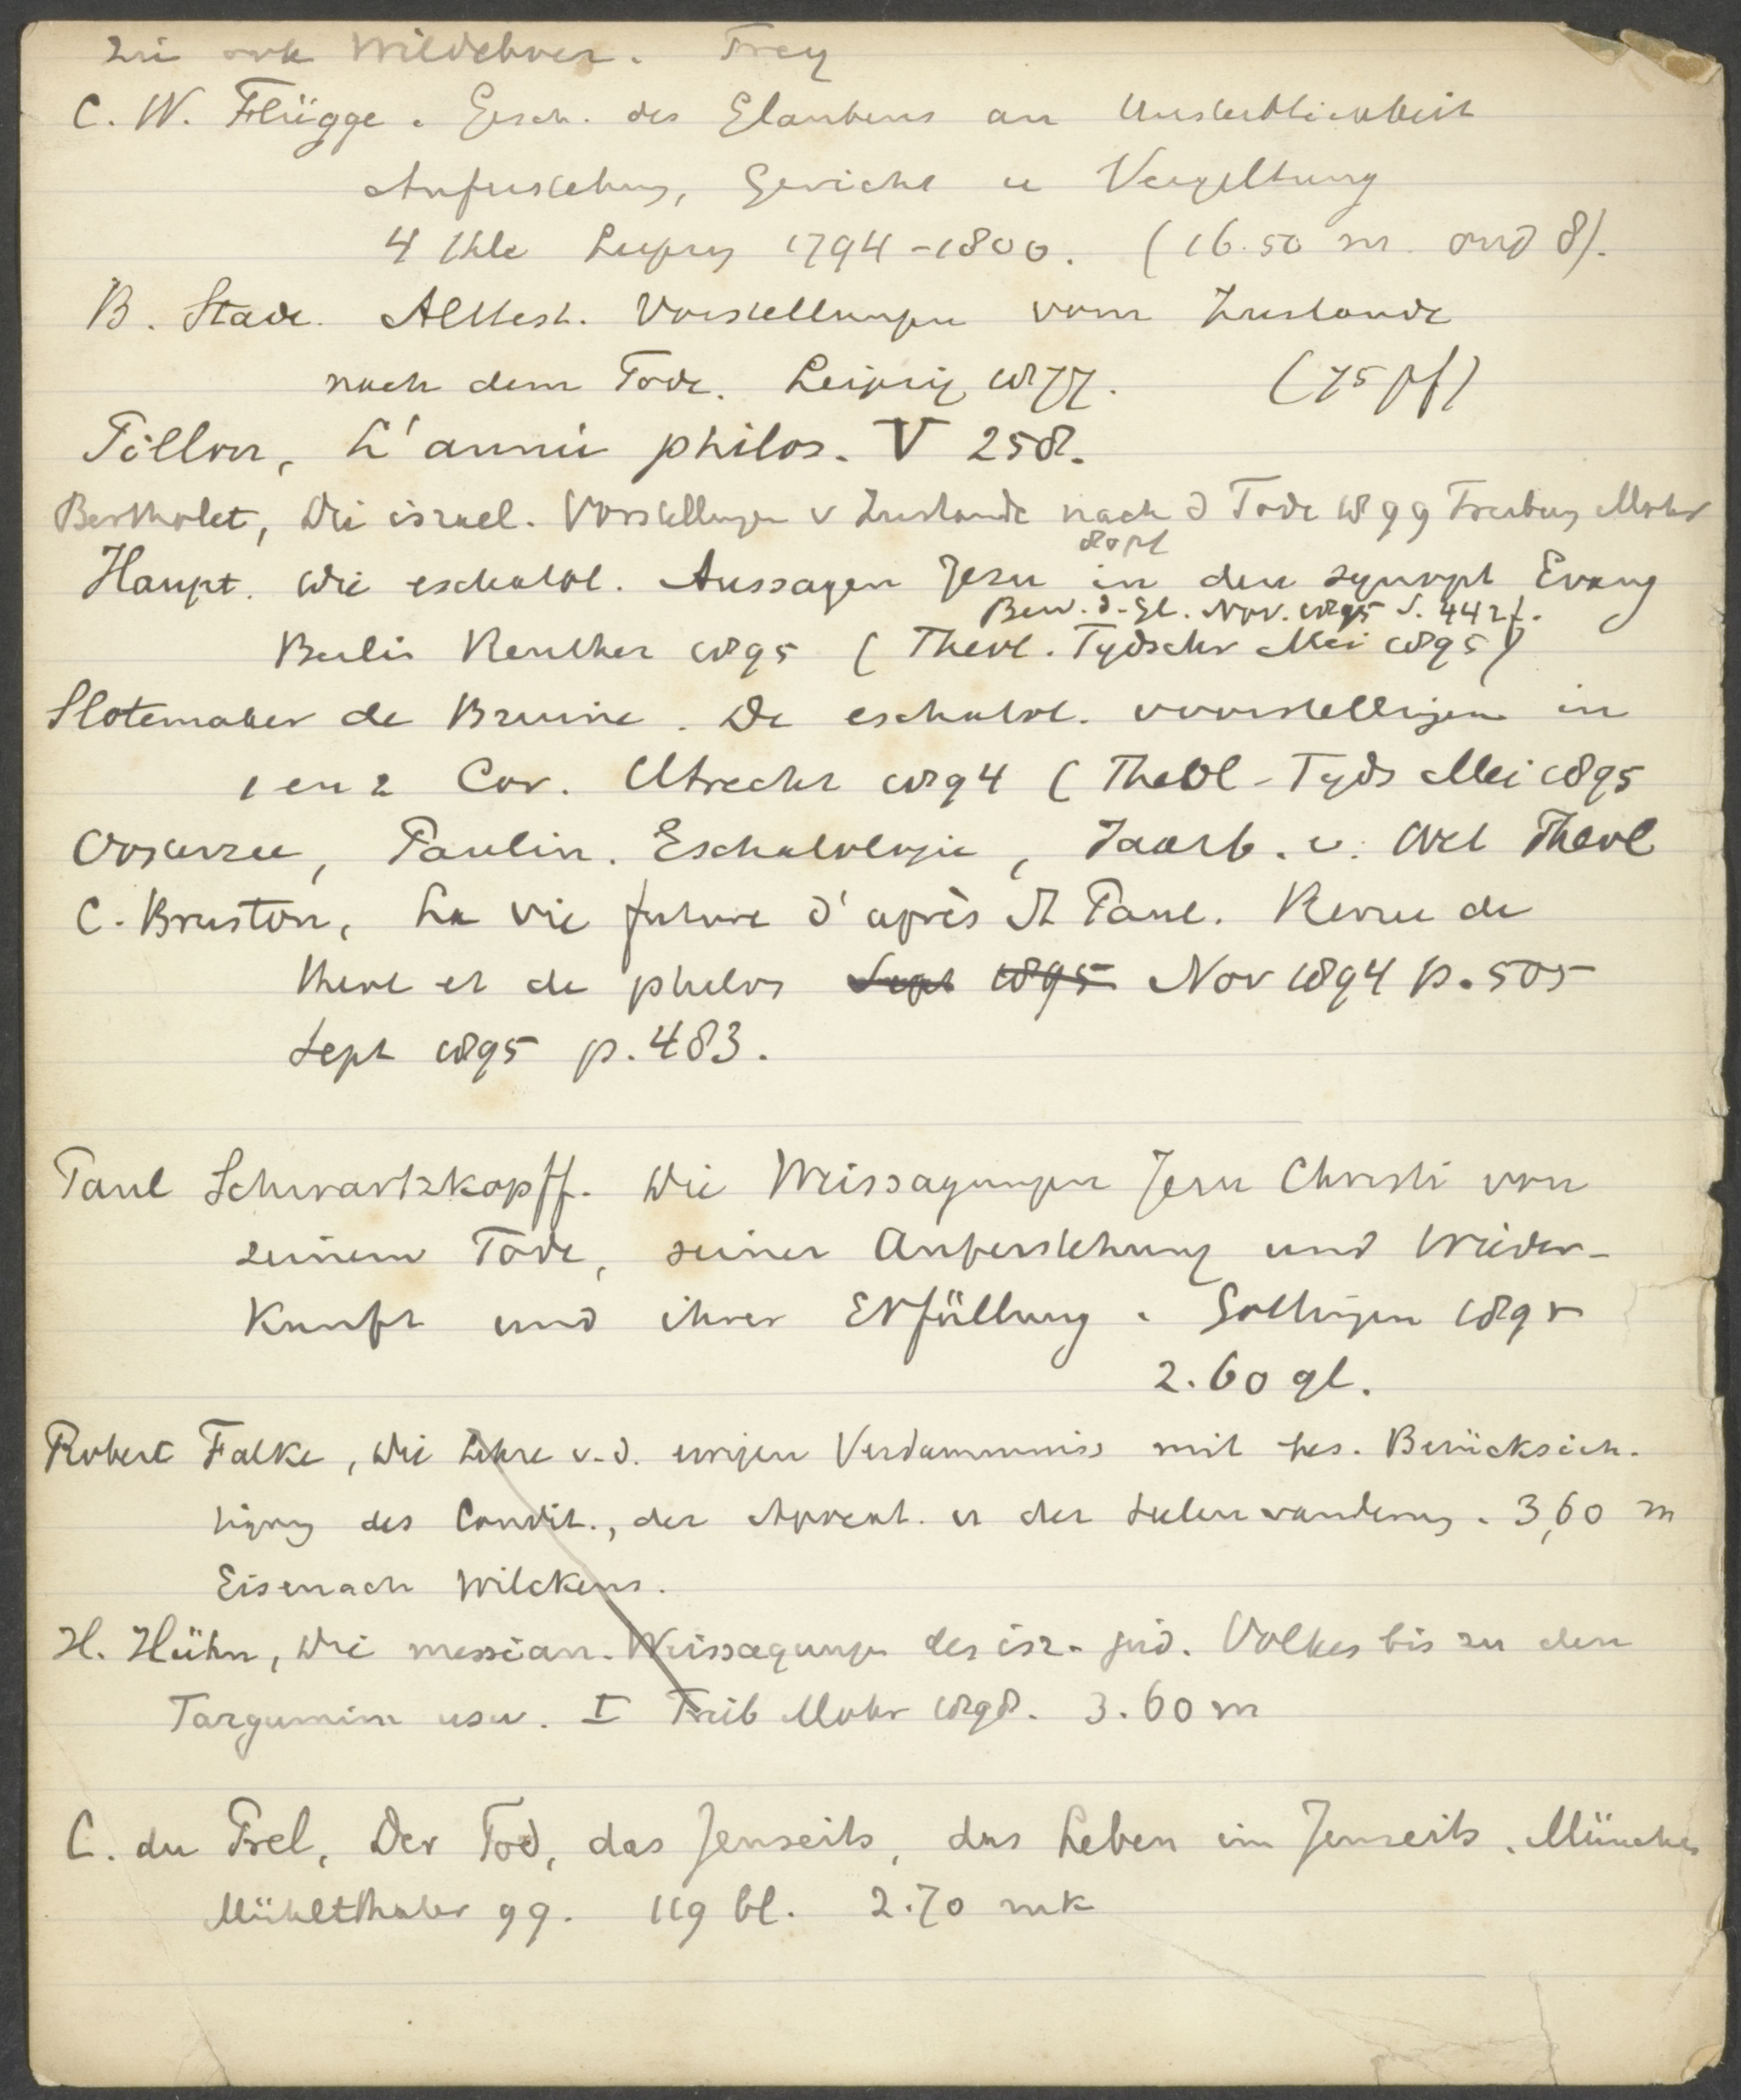 zie ook Wildeboer. Frey
C. W. Flügge. Gesch. des Glaubens an Unsterblichkeit
Auferstehung, Gericht u Vergeltung
4 Thle Leipzig 1794-1800. (16.50 m. oud 8).
B. Stade. Alttest. Vorstellungen vom Zustande
nach dem Tode. Leipzig 1877. (75 pf)
Pillon, L'année philos. V 258.
Bertholet, Die israel. Vorstellungen v Zustande nach d Tode 1899 Freiburg Mohr
80 pf
Haupt. Die eschatol. Aussagen Jesu in den synopt Evang
Bew. d. Gl. Nov. 1895 S. 442f.
Berlin Reuther 1895 (Theol. Tydschr Mei 1895)
Slotemaker de Bruine. De eschatol. voorstellingen in
1 en 2 Cor. Utrecht 1894 (Theol-Tyds Mei 1895
Oosterzee, Paulin. Eschatologie, Jaarb. v. Wet Theol
C. Bruston, La vie future d'après St Paul. Revue de
theol et de philos Sept 1895 Nov 1894 p. 505
Sept 1895 p. 483.
Paul Schwartzkopff. Die Weissagungen Jesu Christi von
seinem Tode, seiner Auferstehung und Wieder-
kunft und ihrer Erfüllung. Gottingen 1895
2.60 gl.
Robert Falke, Die Lehre v. d. ewigen Verdammnis mit bes. Berücksich.
tigung des Condit., der Apocat. u der Seelenwanderung. 3,60 m
Eisenach Wilckens.
H. Hühn, Die messian. Weissagungen des isr.-jüd. Volkes bis zu den
Targumim usw. I Freib Mohr 1898. 3.60 m
C. du Prel, Der Tod, das Jenseits, das Leben im Jenseits. München
Mühlthaler 99. 119 bl. 2.70 mk